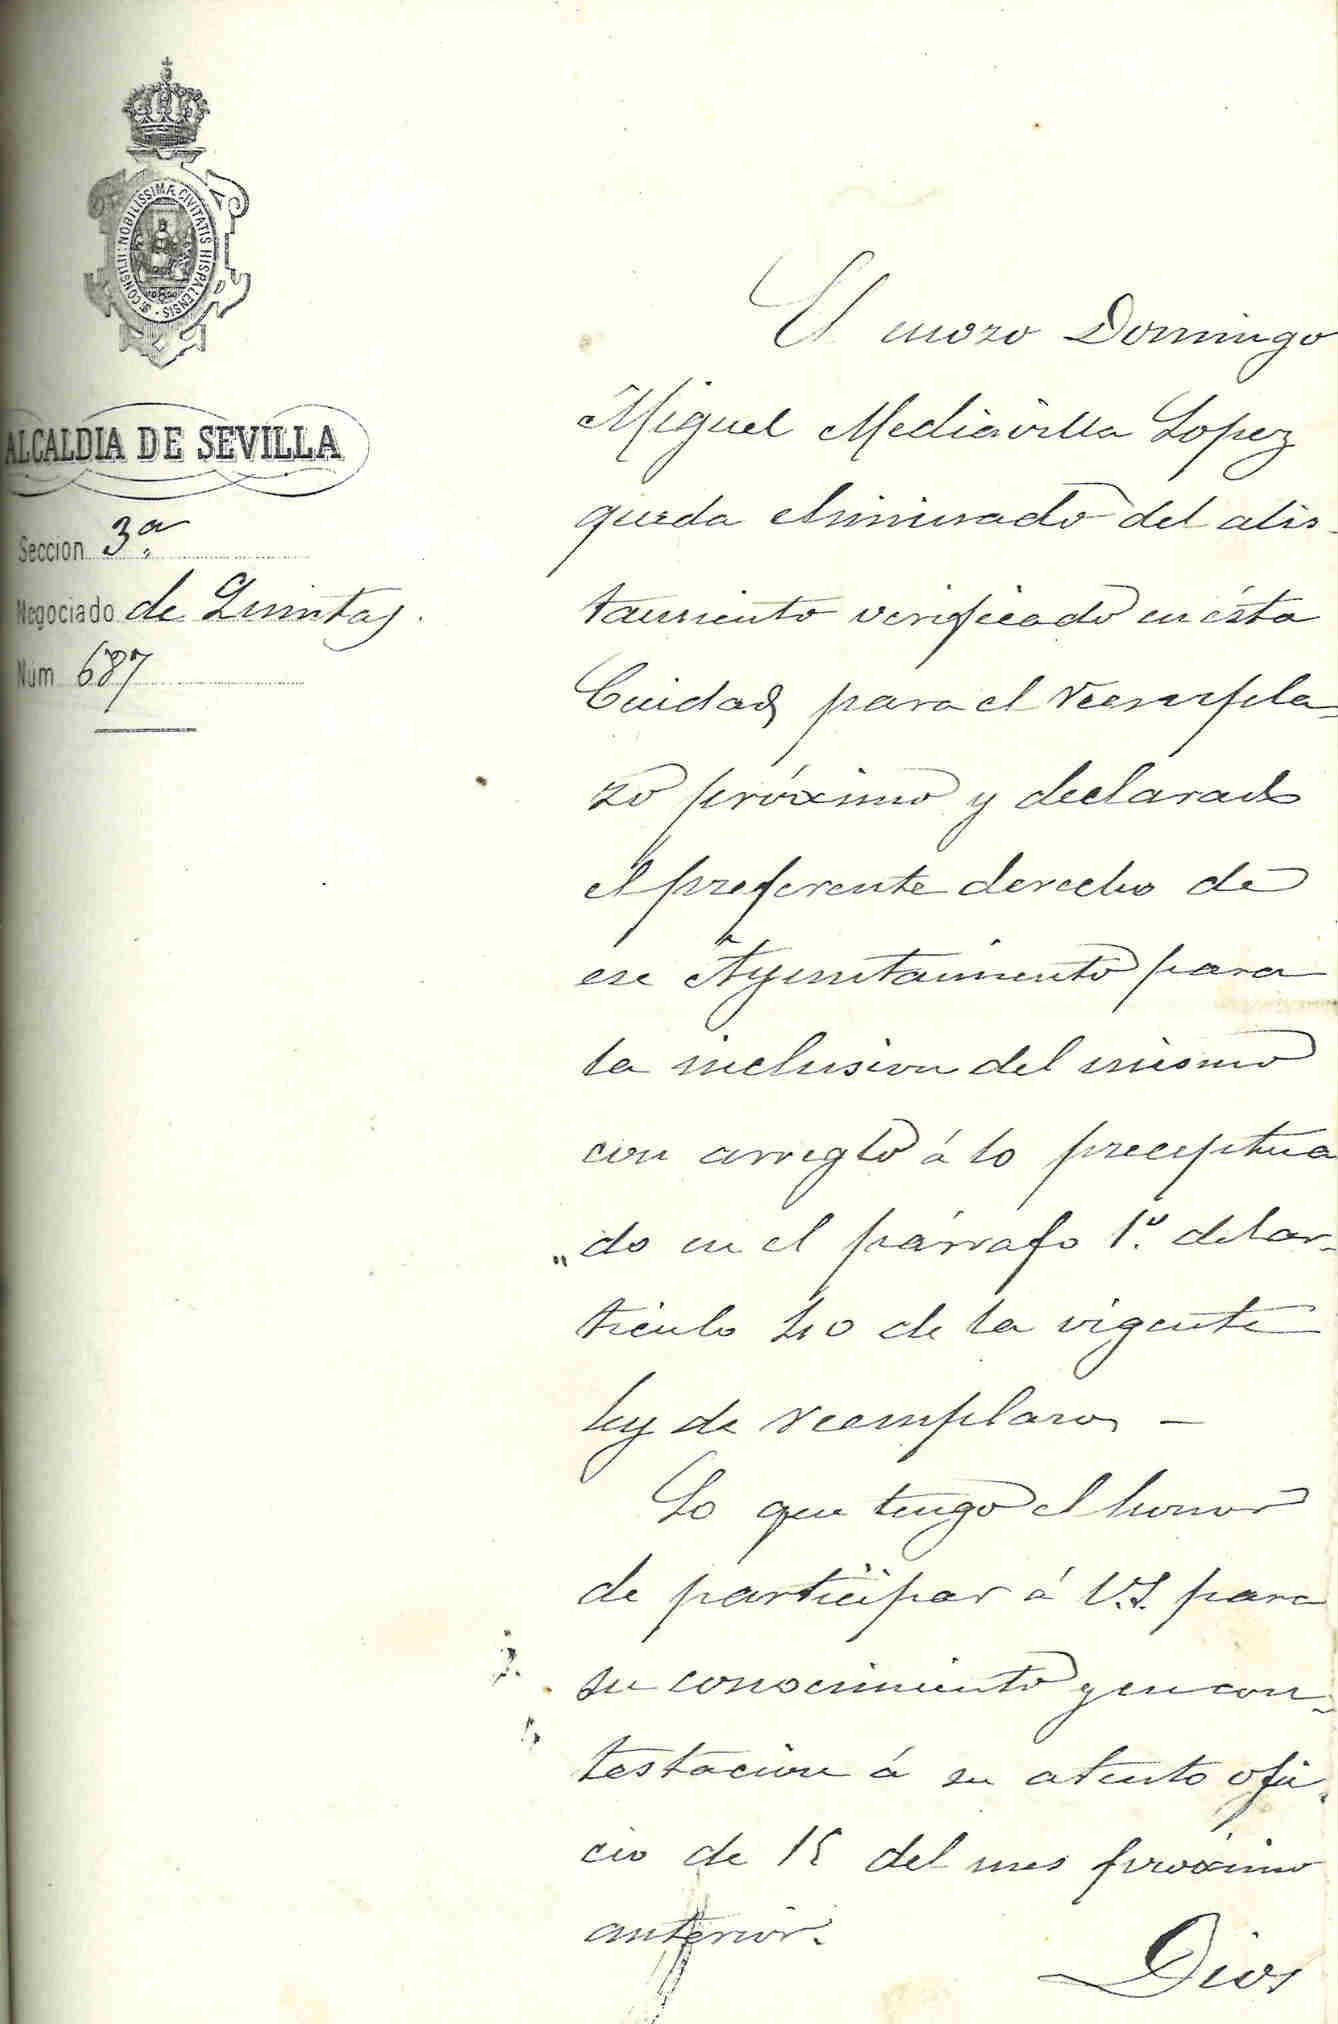 S. CONSILII: NOBILISSIMÆ CIVITATIS HISPALENSIS
ALCALDIA DE SEVILLA
Sección 3ª
Negociado de Quintas.
Núm 687
El mozo Domingo
Miguel Mediavilla Lopez
queda eliminado del alis-
tamiento verificado en ésta
Cuidad para el reempla-
zo próximo y declarado
el preferente derecho de
ese Ayuntamiento para
la inclusion del mismo
con arreglo á lo preceptua
"do en el párrafo 1º del ar-
ticulo 40 de la vigente
ley de reemplazos -
Lo que tengo el honor
de participar á V.S. para
su conocimiento y en con-
testacion á su atento ofi-
cio de 15 del mes próximo
anterior.
Dios